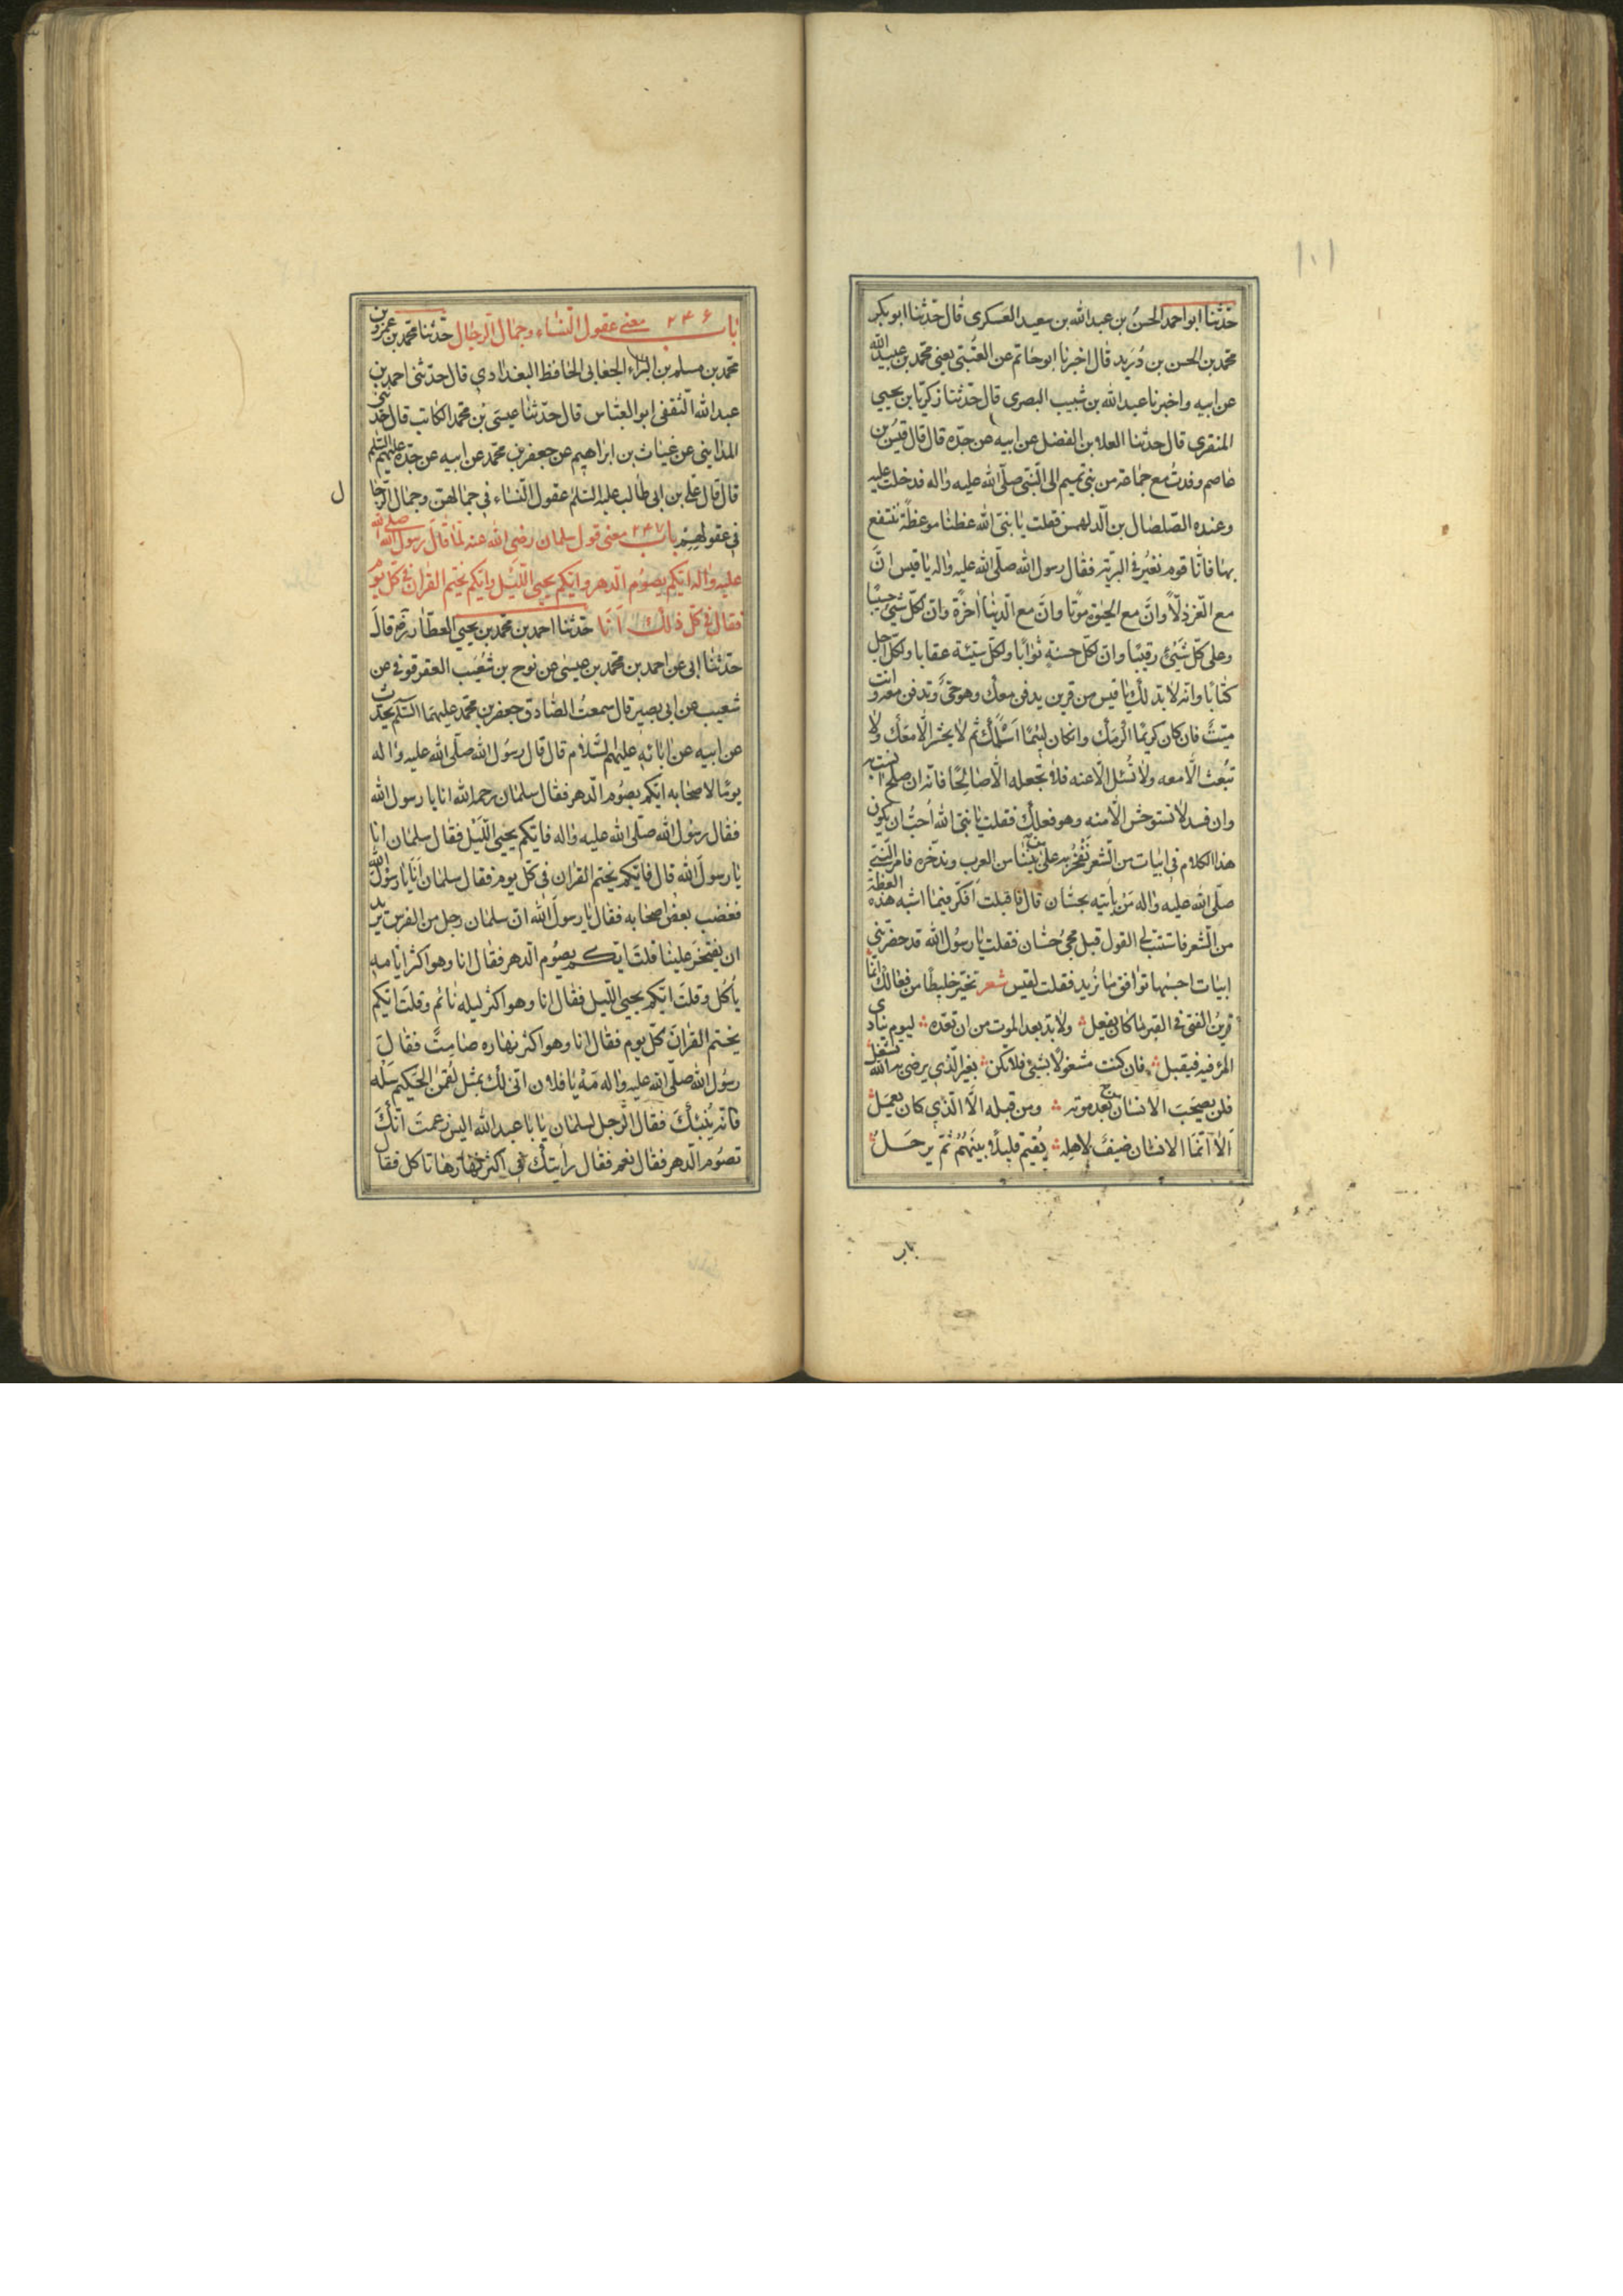 ١٠١
حدّثنا ابو احمد الحسنُ بن عبد الله بن سعيد العسكرى قال حدّثنا ابو بكر
محمّد بن الحسن بن دُرَيد قال اخبرنا ابو حاتم عن العُتبى يعنى محمّد بن عبيد الله
عن ابيه واخبرنا عبد الله بن شبيب البصرى قال حدّثنا زكريّا بن يحيى
المنقرى قال حدثنا العلا بن الفضل عن ابيه عن جدّه قال قال قيس بن
عاصم وفدتُ مع جماعة من بنى تميم الى النّبىّ صلّى الله عليه واله فدخلت عليه
وعنده الصّلصال بن الدلهمس فقلت يا نبىّ الله عظنا موعظةً ننتفع
بها فانّا قوم نعيُر فى البريّة فقال رسول الله صلّى الله عليه واله يا قيس انّ
مع العّز ذلّاً وانّ مع الحيوة موتًا وانّ مع الدّنيا اخرةً وانّ لكلّ شئ حسيبًا
وعلى كلّ شئ رقيبًا وانّ لكلّ حسنةٍ ثوابًا ولكلّ سيّئة عقابا ولكلّ اجل
كتابًا وانّه لا بدّ لك يا قيس من قرين يدفن معك وهو حىّ وتدفن معه وانت
ميّت فان كان كريمًا اكرمك وان كان لئيمًا اسلمك ثم لا يحشر الّا معك ولا
تبُعث الّا معه ولا تُسئل الّا عنه فلا تجعله الّا صالحًا فانّه ان صلح انست به
وان فسد لا تستوحش الّا منه وهو فعلك فقلت يا نبىّ الله اُحبّ ان يكون
هذا الكلام فى ابيات من الشّعر نفخر به على من يلينا من العرب وندّخره فامر النّبىّ
صلّى الله عليه واله مَنْ يأتيه بحسّان قال فاقبلت اَفكّر فيما اشبه هذه العظة
من الشّعر فاستتبّ لى القول قبل مجئ حسّان فقلت يا رسُول الله قد حضرتنى
ابيات احسبها توافق ما نُريد فقلت لقيس شعر تخيّر خليطًا من فعالك انّما
قرينُ الفتى فى القبر ما كان يفعل ولا بدّ بعد الموت من ان تعدّه ليوم ينادى
المرء فيه فيقبل فان كنت مشغولًا بشئ فلا تكن بغير الّذى يرضى به الله تشغل
فلن يصحَبَ الانسان من بعد موته ومن قبله الّا الّذى كان يعمَلُ
اَلا انّمَا الانسان ضيفٌ لاهله يُقيم قليلاً بينَهُمْ ثُمّ يرحَلُ
باب
باب ٢٤٦ معنى عقول النّساء وجمال الرّجال حدّثنا محمّد بن عمرو بن
محمّد بن مسلم بن البراء الجعابى الحافظ البغدادى قال حدّثنى احمد بن
عبد الله الثقفى ابو العبّاس قال حدّثنا عيسى بن محمّد الكاتب قال حدّثنى
المداينى عن غياث بن ابراهيم عن جعفر بن محمّد عن ابيه عن جدّه عليهم السّلم
قال قال على بن ابى طالب عليه السّلم عقول النّساء فى جمالهنّ وجمال الرّجال
فى عقولهِمْ باب ٢٤٧ معنى قول سلمان رضى الله عنه لمّا قال رسول الله صلى الله
عليه واله ايّكم يصوُم الدّهر وايّكم يحيى اللّيل وايّكم يختم القران فى كلّ يوم
فقال فى كلّ ذلك اَنَا حدّثنا احمد بن محمّد بن يحيى العطّار ره قال
حدّثنا ابى عن احمد بن محمّد بن عيسى عن نوح بن شُعَيب العقرقوفى عن
شعيب عن ابى بصير قال سمعتُ الصّادق جعفر بن محمّد عليهما السّلم يحدّث
عن ابيه عن ابائه عليهم السّلام قال قال رسُول الله صلّى الله عليه واله
يومًا لاصحابه ايّكم يصُوم الدّهر فقال سلمان رحمه الله انا يا رسول الله
فقال رسُول الله صلّى الله عليه واله فايّكم يحيى اللّيل فقال سلمان انا
يا رسولَ الله قال فايّكم يختم القران فى كلّ يوم فقال سلمان اَنَا يا رسُول الله
فغضب بعض اصحابه فقال يا رسولَ الله انّ سلمان رجل من الفرس يريد
ان يفتخرَ علينا قلتَ ايّكم يصوُم الدّهر فقال انا وهو اكثر ايّامه
يأكُل وقلتَ ايّكم يحيى اللّيل فقال انا وهو اكثر ليله نائم وقلتَ ايّكم
يختم القران كلّ يوم فقال انا وهو اكثر نهاره صامتٌ فقالَ
رسُول الله صلّى الله عليه واله مَهْ يا فلان انّى لك بمثل لُقمن الحكيم سَلْه
فانّه يُنبئكَ فقال الرّجل لسلمان يا ابا عبد الله اليس زعمتَ انّكَ
تصوُم الدّهر فقال نعم فقال رأيتك فى اكثر نهارها تاكل فقال